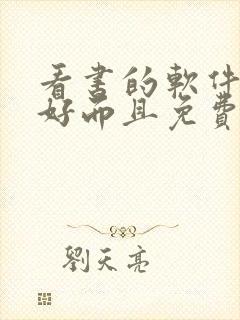 看書的軟件
好而且免費
劉天亮